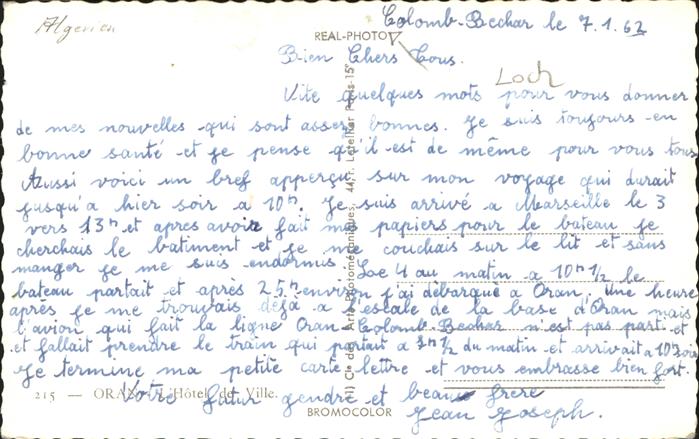 Algerien
Colomb-Bechar le 7.1.62
REAL-PHOTO
Bien Chers Tous.
Loch
Vite quelques mots pour vous donner
de mes nouvelles qui sont assez bonnes. Je suis toujours en
bonne santé et je pense qu'il est de même pour vous tous
Aussi voici un bref apperçu sur mon voyage qui durait
jusqu'a hier soir a 10h. Je suis arrivé a Marseille le 3
vers 13h et apres avoir fait mes papiers pour le bateau je
cherchais le batiment et je me couchais sur le lit et sans
manger je me suis endormis. Le 4 au matin a 10h 1/2 le
bateau partait et après 25h environ j'ai débarqué a Oran, une heure
après je me trouvais déjà a l'escale de la base d'Oran mais
l'avion qui fait la ligne Oran - Colomb-Bechar n'est pas part et
et fallait prendre le train qui partait a 1/2 du matin et arrivait a 10 soir
Je termine ma petite carte lettre et vous embrasse bien fort.
215 — ORAN - L'Hôtel de Ville.
Votre futur gendre et beau frere
Jean Joseph.
BROMOCOLOR
Cie des Arts Photomécaniques, 44, r. Letellier Paris-15e